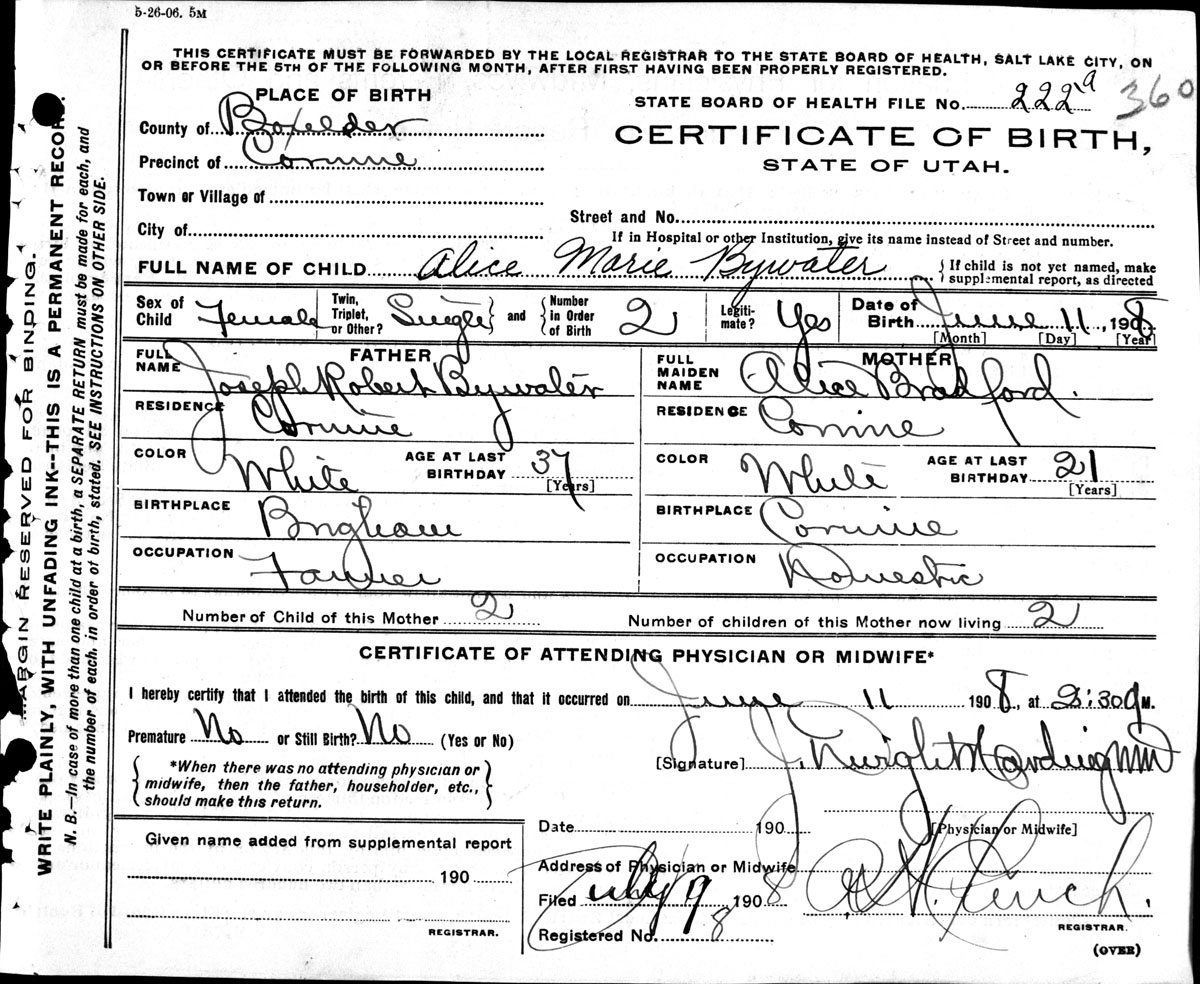 5-26-06. 5M
THIS CERTIFICATE MUST BE FORWARDED BY THE LOCAL REGISTRAR TO THE STATE BOARD OF HEALTH, SALT LAKE CITY, ON
OR BEFORE THE 5TH OF THE FOLLOWING MONTH, AFTER FIRST HAVING BEEN PROPERLY REGISTERED.
PLACE OF BIRTH
STATE BOARD OF HEALTH FILE No. 222a 360
County of Boxelder
CERTIFICATE OF BIRTH,
Precinct of Corinne
STATE OF UTAH.
Town or Village of
Street and No.
City of
If in Hospital or other Institution, give its name instead of Street and number.
FULL NAME OF CHILD Alice Marie Bywater { If child is not yet named, make
supplemental report, as directed
Sex of Child Female Twin, Triplet, or Other? Single } and { Number in Order of Birth 2 Legiti-mate? Yes Date of Birth June 11, 1908
[Month] [Day] [Year]
FATHER MOTHER
FULL NAME Joseph Robert Bywater FULL MAIDEN NAME Alice Bradford.
RESIDENCE Corinne RESIDENCE Corinne
COLOR White AGE AT LAST BIRTHDAY 37 [Years] COLOR White AGE AT LAST BIRTHDAY 21 [Years]
BIRTHPLACE Brigham BIRTHPLACE Corinne
OCCUPATION Farmer OCCUPATION Domestic
Number of Child of this Mother 2 Number of children of this Mother now living 2
CERTIFICATE OF ATTENDING PHYSICIAN OR MIDWIFE*
I hereby certify that I attended the birth of this child, and that it occurred on June 11 1908, at 2:30 a M.
Premature No or Still Birth? No (Yes or No)
[Signature] J. Harding MD
*When there was no attending physician or
midwife, then the father, householder, etc.,
should make this return.
[Physician or Midwife]
Date 190
Given name added from supplemental report
190
REGISTRAR.
Address of Physician or Midwife
Filed July 9 1908
Registered No. 8
REGISTRAR.
(OVER)
MARGIN RESERVED FOR BINDING.
WRITE PLAINLY, WITH UNFADING INK--THIS IS A PERMANENT RECORD.
N. B.—In case of more than one child at a birth, a SEPARATE RETURN must be made for each, and
the number of each, in order of birth, stated. SEE INSTRUCTIONS ON OTHER SIDE.